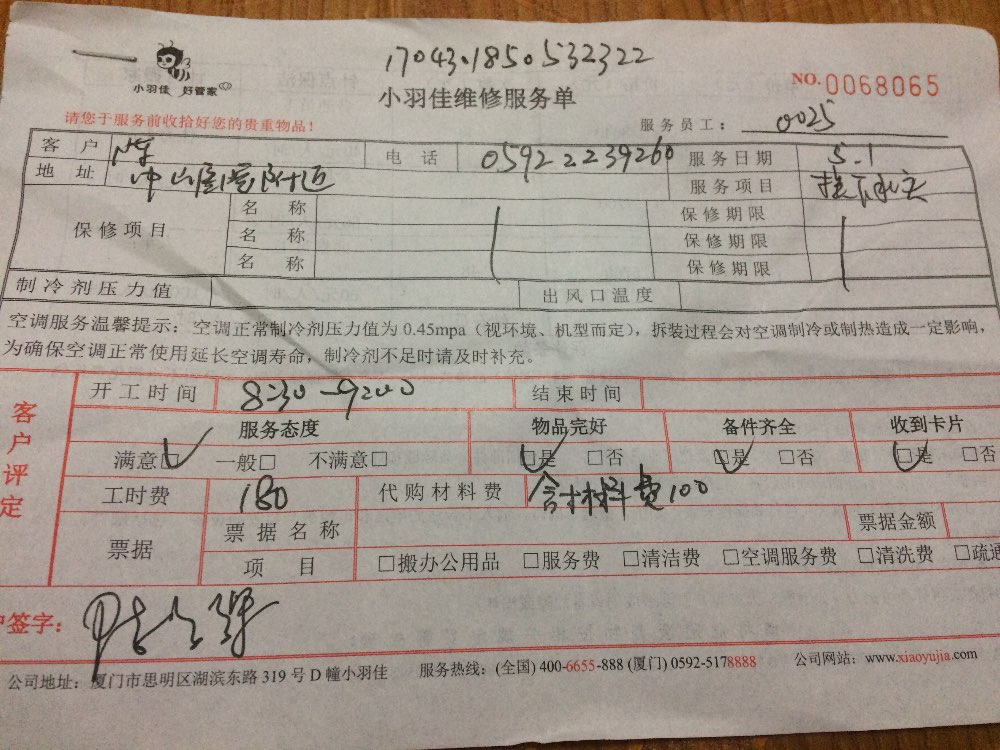 17043.1850532322
小羽佳 好管家
小羽佳维修服务单
NO. 0068065
请您于服务前收拾好您的贵重物品！
服务员工： 0025
客 户 陈 电 话 0592 2239260 服务日期 5.1
地 址 中山 附近 服务项目
保修项目 名 称 保修期限
名 称 保修期限
名 称 保修期限
制冷剂压力值 出风口温度
空调服务温馨提示：空调正常制冷剂压力值为 0.45mpa（视环境、机型而定），拆装过程会对空调制冷或制热造成一定影响，
为确保空调正常使用延长空调寿命，制冷剂不足时请及时补充。
客户评定
开工时间 8:30-9:00 结束时间
服务态度 物品完好 备件齐全 收到卡片
满意□ 一般□ 不满意□ □是 □否 □是 □否 □是 □否
工时费 180 代购材料费 含材料费100
票据 票据名称 票据金额
项 目 □搬办公用品 □服务费 □清洁费 □空调服务费 □清洗费 □疏通
签字：
公司地址：厦门市思明区湖滨东路 319 号 D 幢小羽佳 服务热线：(全国) 400-6655-888 (厦门) 0592-5178888 公司网站：www.xiaoyujia.com